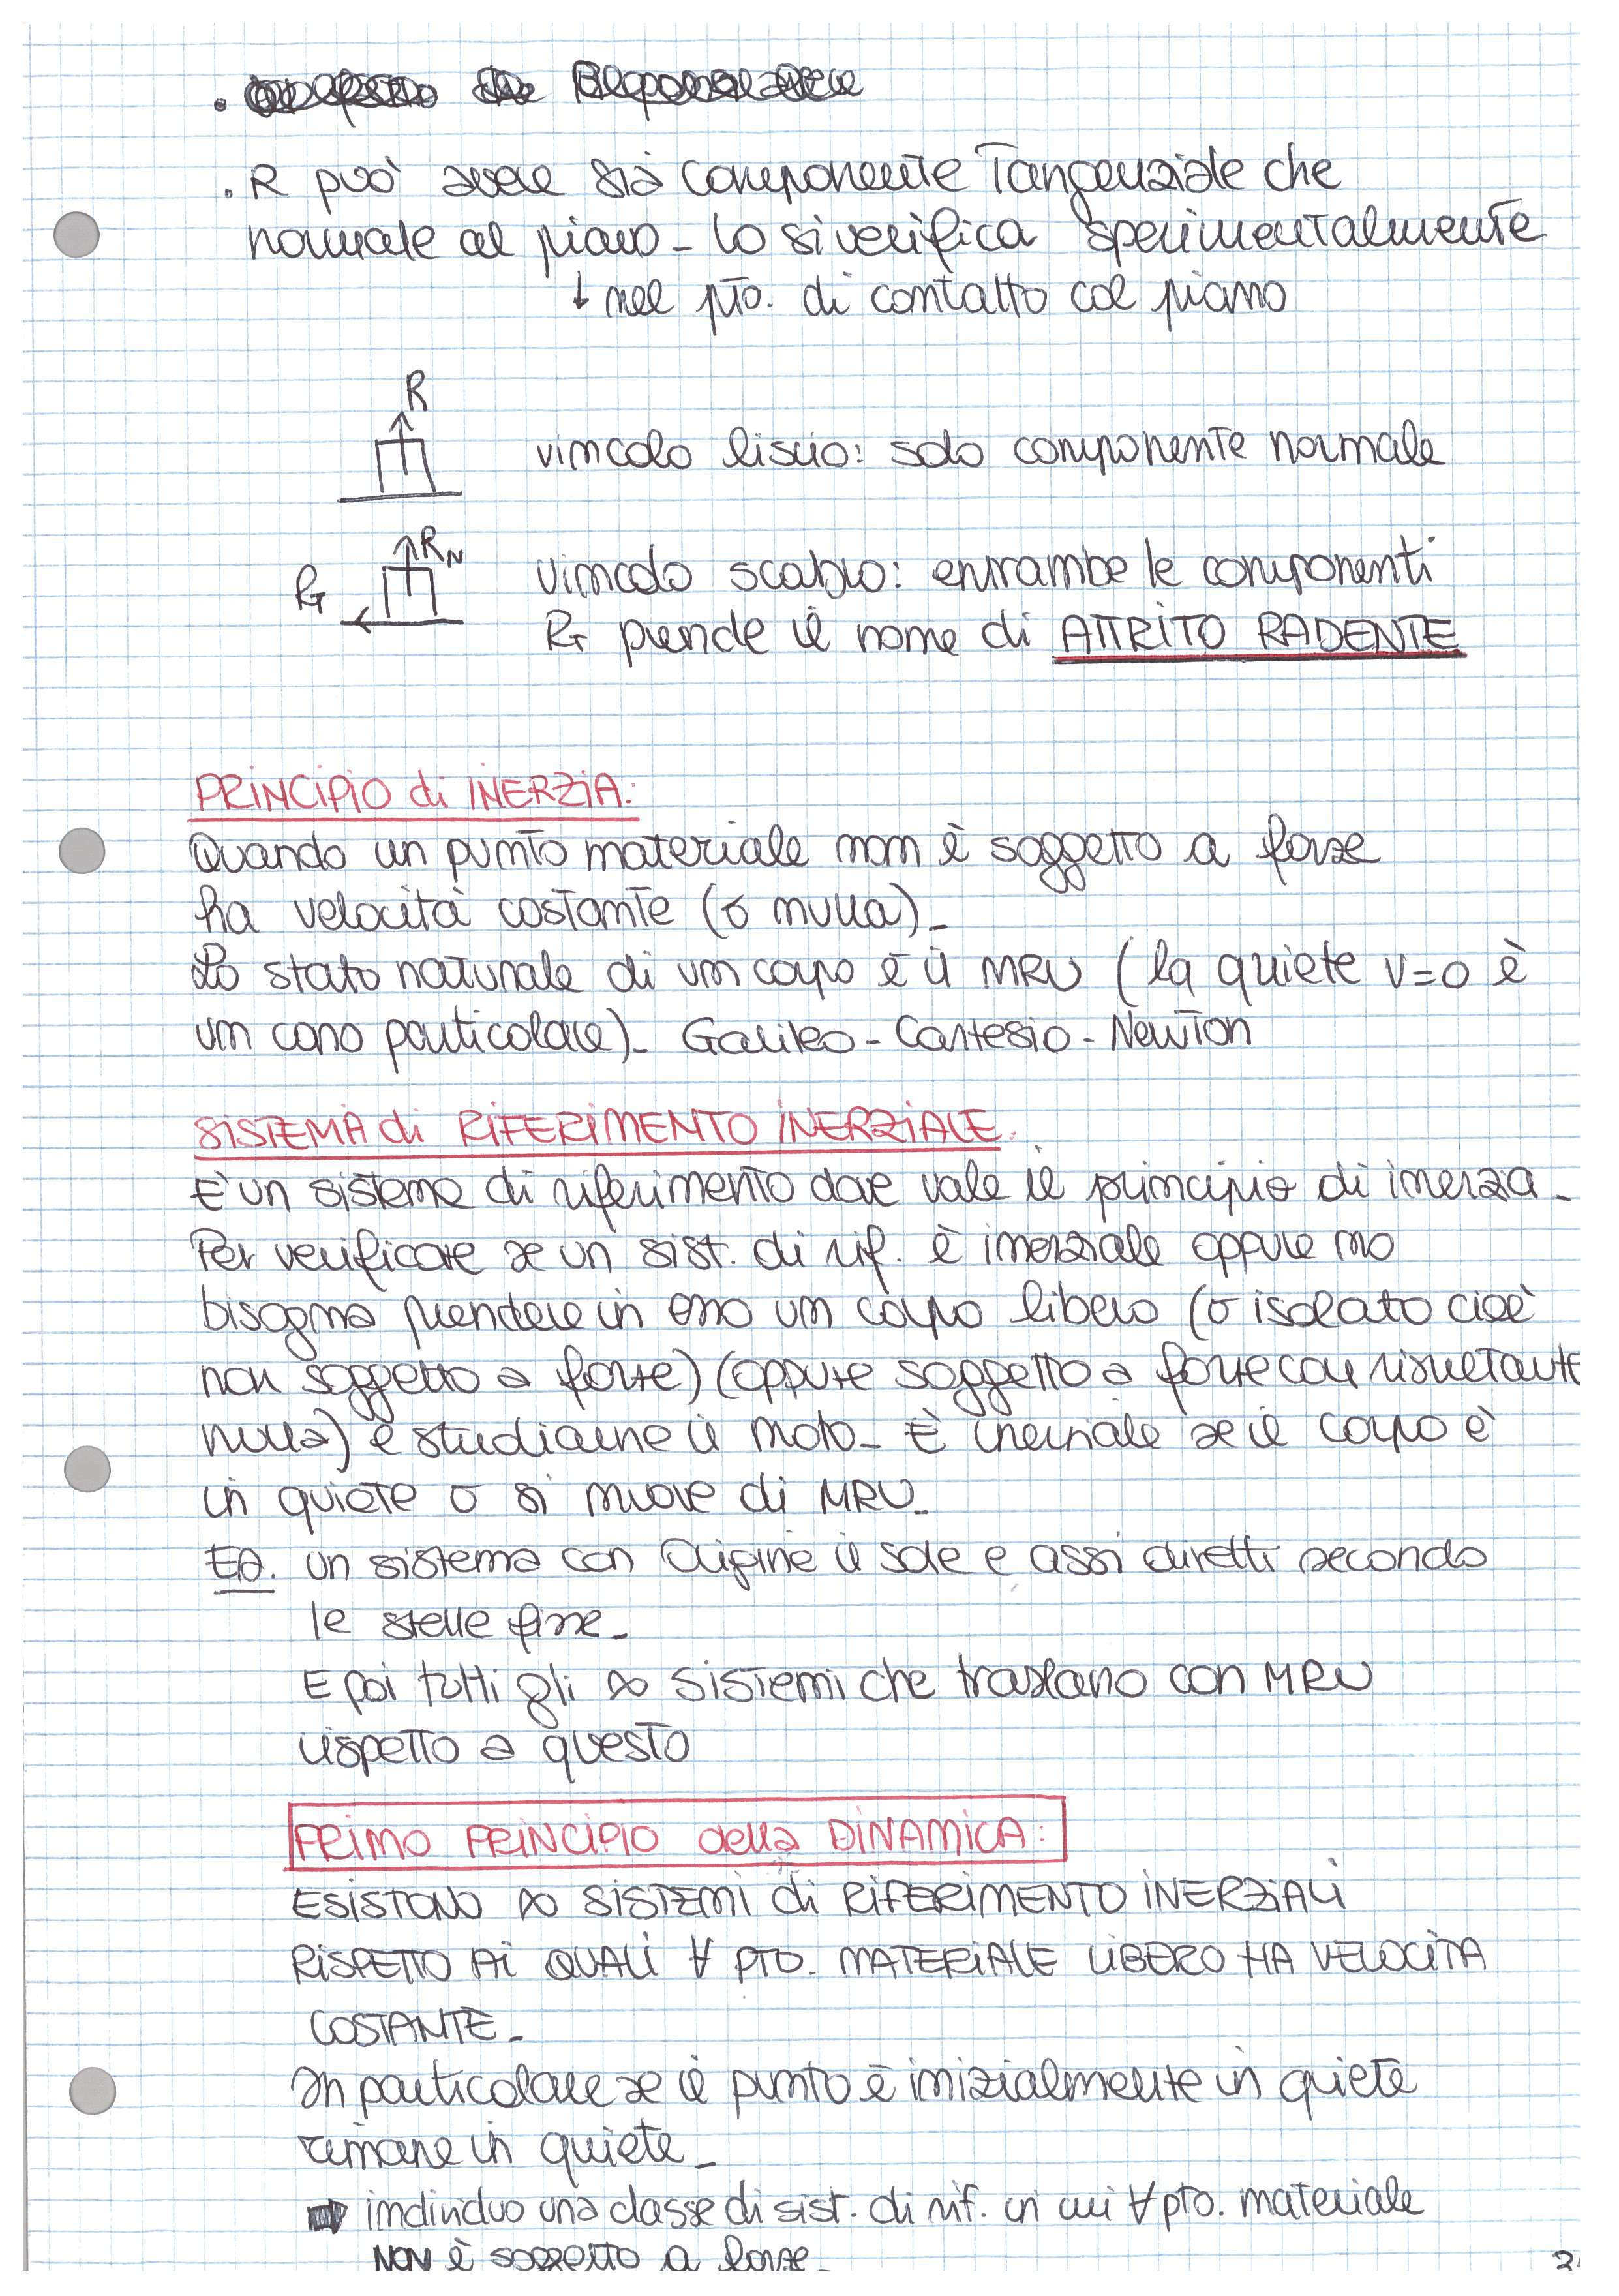 . R può avere sia componente Tangenziale che
normale al piano - lo si verifica sperimentalmente
↓ nel pto. di contatto col piano
R
vincolo liscio: solo componente normale
R_N
R_T
vincolo scabro: entrambe le componenti
R_T prende il nome di ATTRITO RADENTE
PRINCIPIO di INERZIA:
Quando un punto materiale non è soggetto a forze
ha velocità costante (o nulla)_
Lo stato naturale di un corpo è il MRU (la quiete v=0 è
un caso particolare)_ Galileo - Cartesio - Newton
SISTEMA di RIFERIMENTO INERZIALE.
È un sistema di riferimento dove vale il principio di inerzia_
Per verificare se un sist. di rif. è inerziale oppure no
bisogna prendere in esso un corpo libero (o isolato cioè
non soggetto a forze) (oppure soggetto a forze con risultante
nulla) e studiarne il moto_ È inerziale se il corpo è
in quiete o si muove di MRU_
Es. un sistema con Origine il sole e assi diretti secondo
le stelle fisse_
E poi tutti gli ∞ sistemi che traslano con MRU
rispetto a questo
PRIMO PRINCIPIO della DINAMICA:
ESISTONO ∞ SISTEMI di RIFERIMENTO INERZIALI
RISPETTO AI QUALI ∀ PTO. MATERIALE LIBERO HA VELOCITÀ
COSTANTE_
In particolare se il punto è inizialmente in quiete
rimane in quiete_
➡ individuo una classe di sist. di rif. in cui ∀ pto. materiale
NON è soggetto a forze